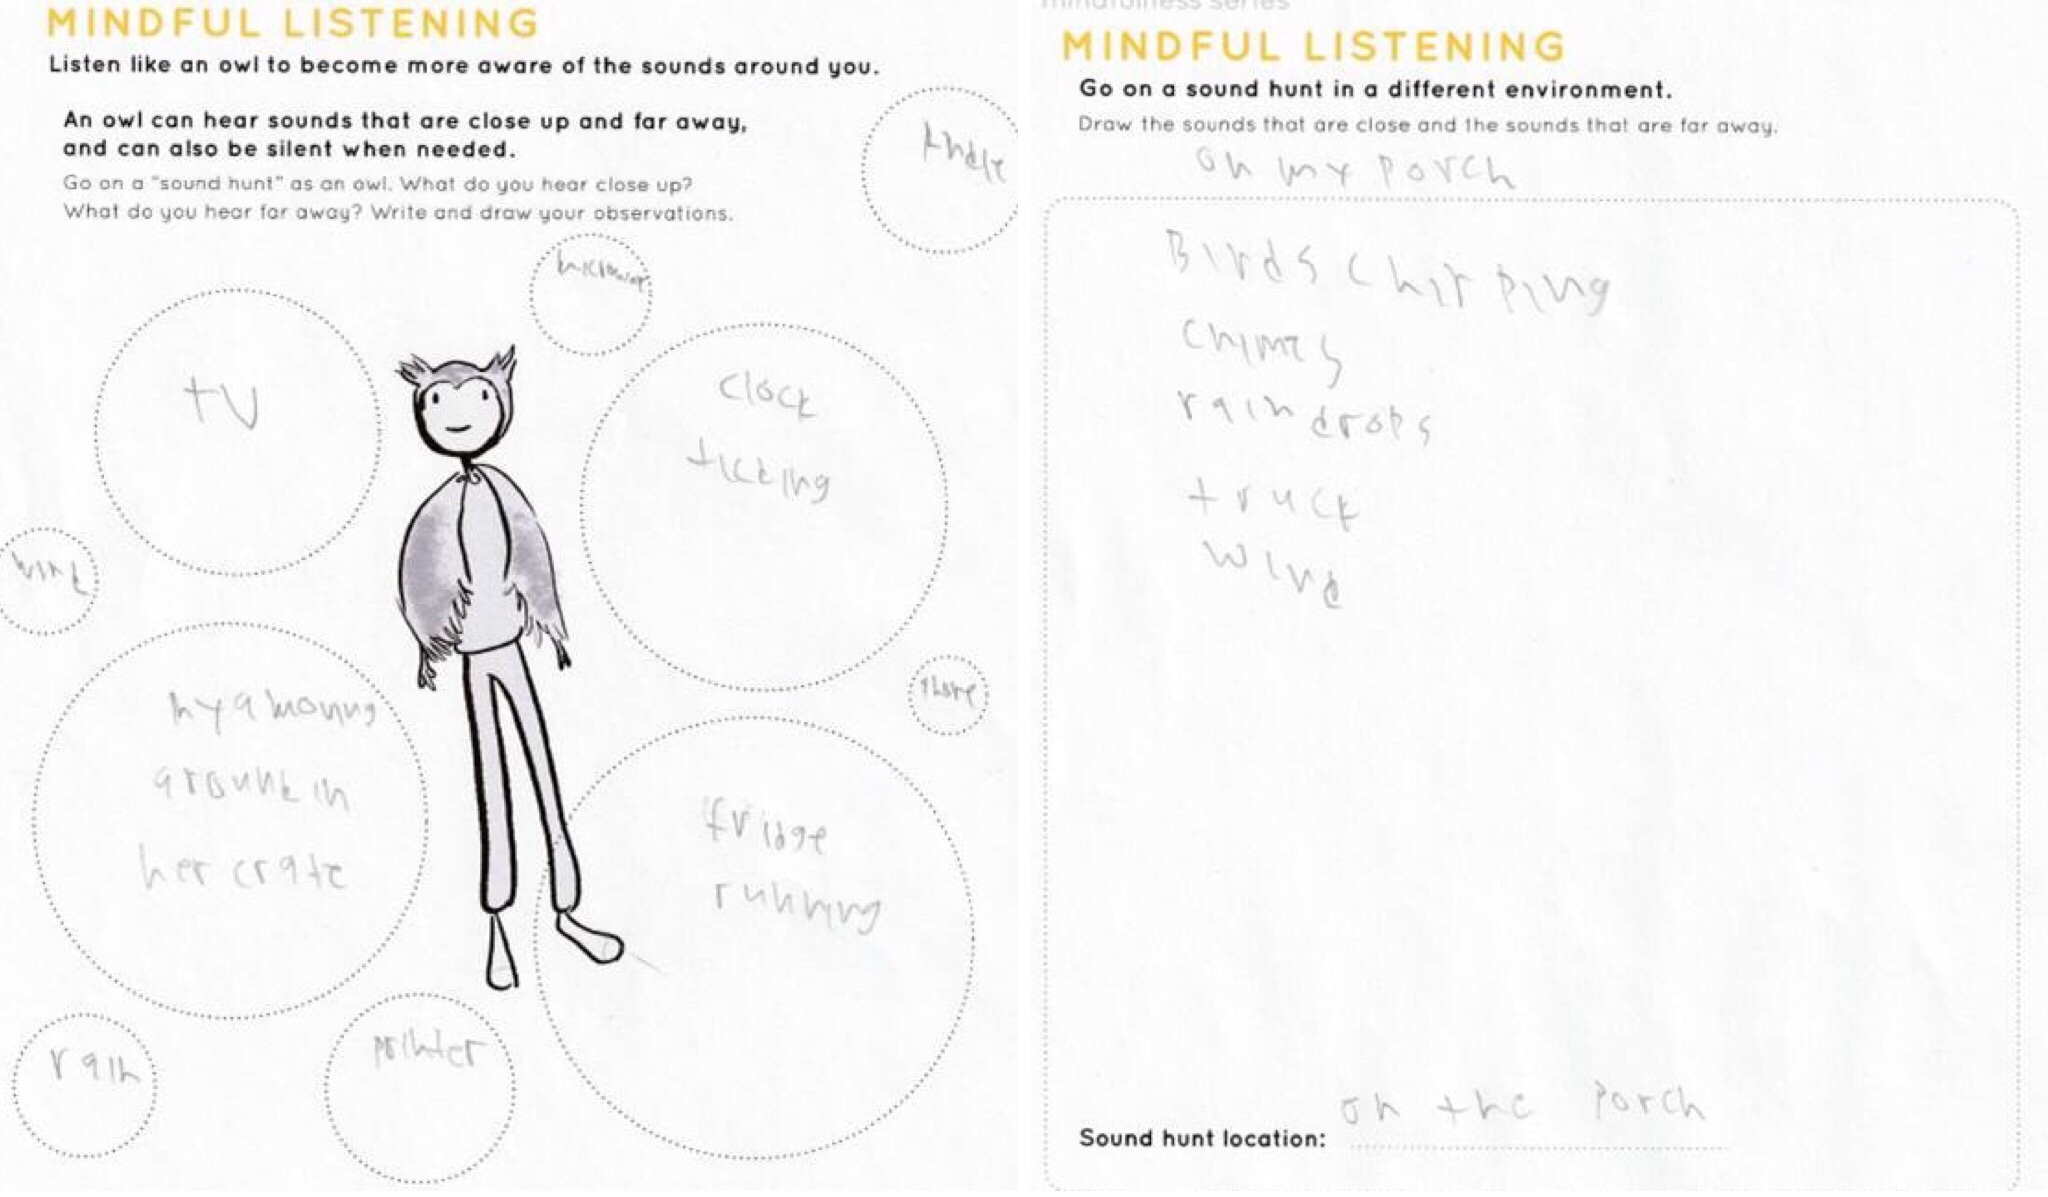 MINDFUL LISTENING
Listen like an owl to become more aware of the sounds around you.
An owl can hear sounds that are close up and far away,
and can also be silent when needed.
Go on a "sound hunt" as an owl. What do you hear close up?
What do you hear far away? Write and draw your observations.
kndle
microwave
tv
clock
ticking
wind
phone
nya moving
around in
her crate
fridge
running
rain
printer
mindfulness series
MINDFUL LISTENING
Go on a sound hunt in a different environment.
Draw the sounds that are close and the sounds that are far away.
on my porch
Birds chirping
chimes
raindrops
truck
wind
on the porch
Sound hunt location: